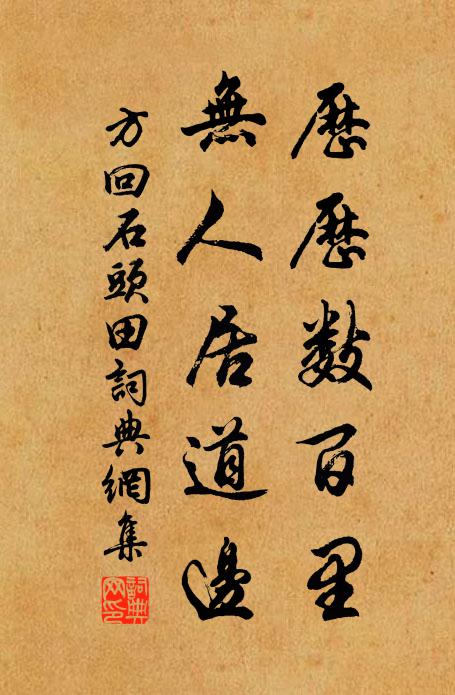 歷歷數百里
無人居道邊
方回石頭田詞典網集
詞典网印